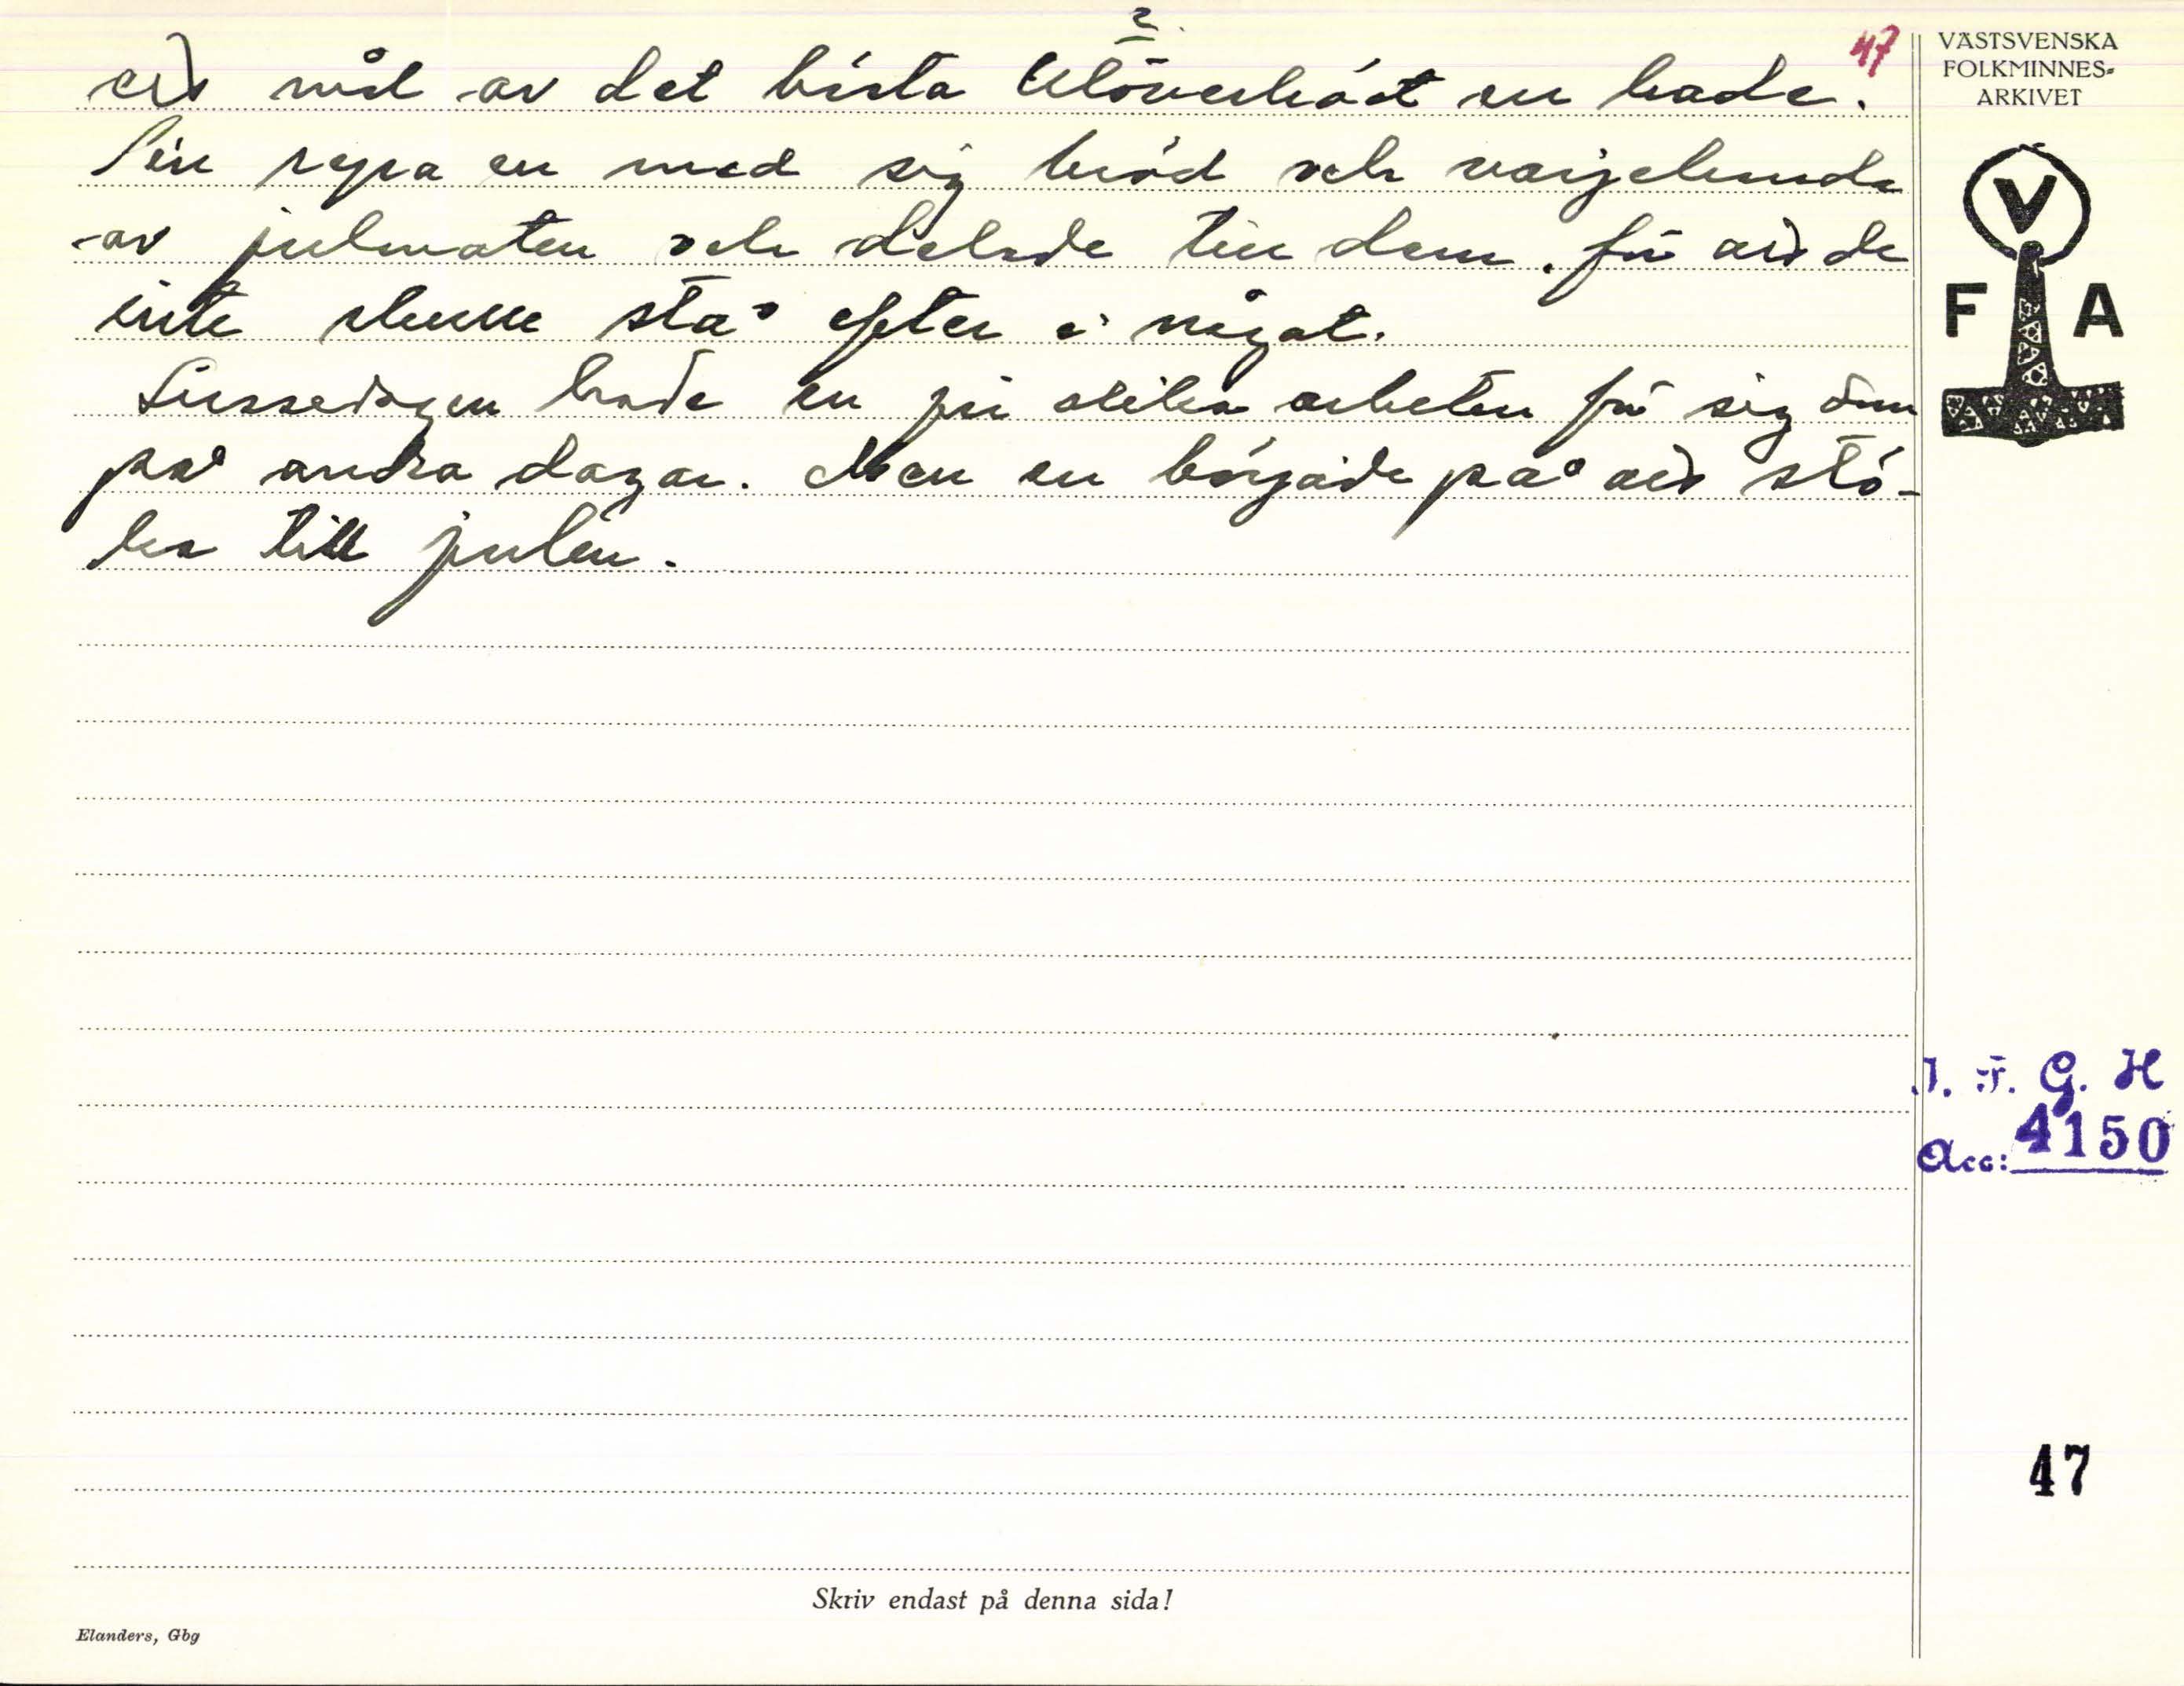 2.
47
ett mål av det bästa klöverhöet en hade.
Sen          en med sig bröd och varjehanda
av julmaten och delade till dem. för att de
inte skulle stå efter i något.
Lussedagen hade en          olika arbeten för sig som
på andra dagar. Men en började på att stö-
ka till julen.
VÄSTSVENSKA
FOLKMINNES-
ARKIVET
V
F A
I. F. G. H
Acc: 4150
47
Skriv endast på denna sida!
Elanders, Gbg